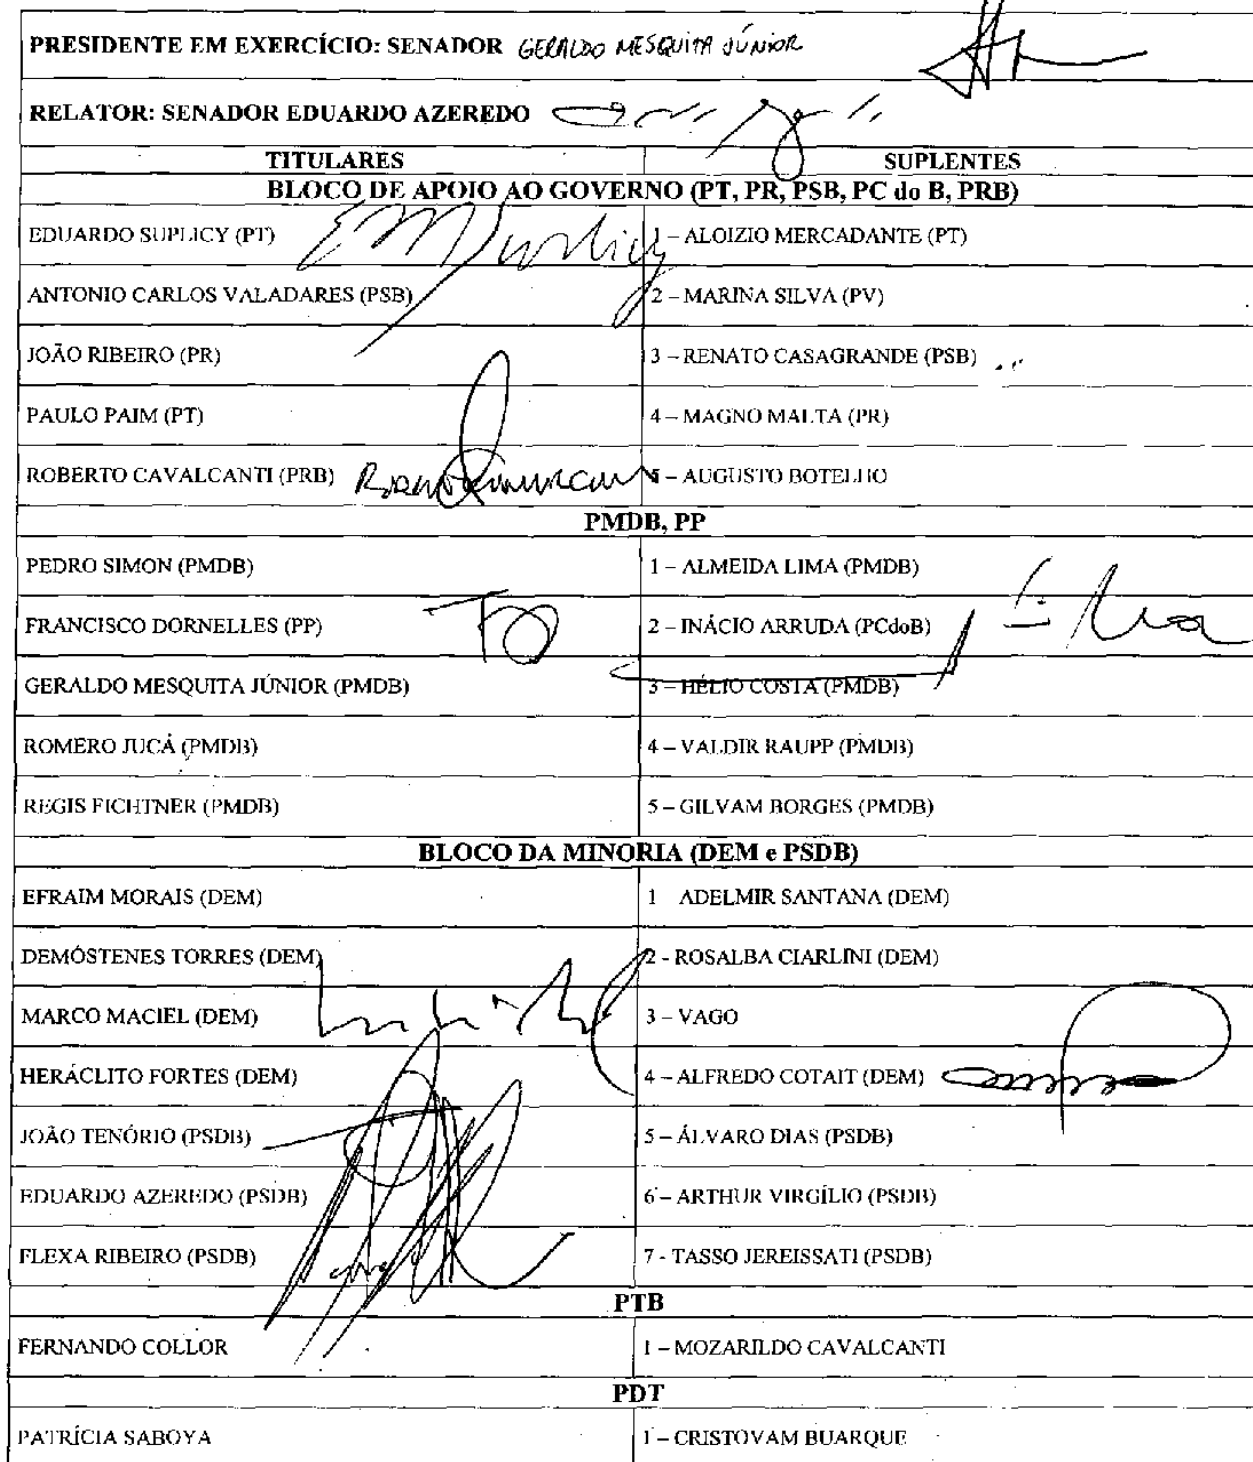 PRESIDENTE EM EXERCÍCIO: SENADOR GERALDO MESQUITA JÚNIOR
RELATOR: SENADOR EDUARDO AZEREDO
TITULARES SUPLENTES
BLOCO DE APOIO AO GOVERNO (PT, PR, PSB, PC do B, PRB)
EDUARDO SUPLICY (PT) 1 – ALOIZIO MERCADANTE (PT)
ANTONIO CARLOS VALADARES (PSB) 2 – MARINA SILVA (PV)
JOÃO RIBEIRO (PR) 3 – RENATO CASAGRANDE (PSB)
PAULO PAIM (PT) 4 – MAGNO MALTA (PR)
ROBERTO CAVALCANTI (PRB) 5 – AUGUSTO BOTELHO
PMDB, PP
PEDRO SIMON (PMDB) 1 – ALMEIDA LIMA (PMDB)
FRANCISCO DORNELLES (PP) 2 – INÁCIO ARRUDA (PCdoB)
GERALDO MESQUITA JÚNIOR (PMDB) 3 – HÉLIO COSTA (PMDB)
ROMERO JUCÁ (PMDB) 4 – VALDIR RAUPP (PMDB)
REGIS FICHTNER (PMDB) 5 – GILVAM BORGES (PMDB)
BLOCO DA MINORIA (DEM e PSDB)
EFRAIM MORAIS (DEM) 1 ADELMIR SANTANA (DEM)
DEMÓSTENES TORRES (DEM) 2 - ROSALBA CIARLINI (DEM)
MARCO MACIEL (DEM) 3 – VAGO
HERÁCLITO FORTES (DEM) 4 – ALFREDO COTAIT (DEM)
JOÃO TENÓRIO (PSDB) 5 – ÁLVARO DIAS (PSDB)
EDUARDO AZEREDO (PSDB) 6 – ARTHUR VIRGÍLIO (PSDB)
FLEXA RIBEIRO (PSDB) 7 - TASSO JEREISSATI (PSDB)
PTB
FERNANDO COLLOR 1 – MOZARILDO CAVALCANTI
PDT
PATRÍCIA SABOYA 1 – CRISTOVAM BUARQUE